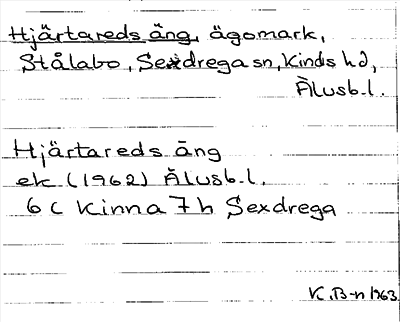 Hjärtareds äng, ägomark,
Stålabo, Sexdrega sn, Kinds hd,
Älvsb.l.
Hjärtareds äng
ek (1962) Älvsb.l.
6 C Kinna 7h Sexdrega
K.B-n 1963